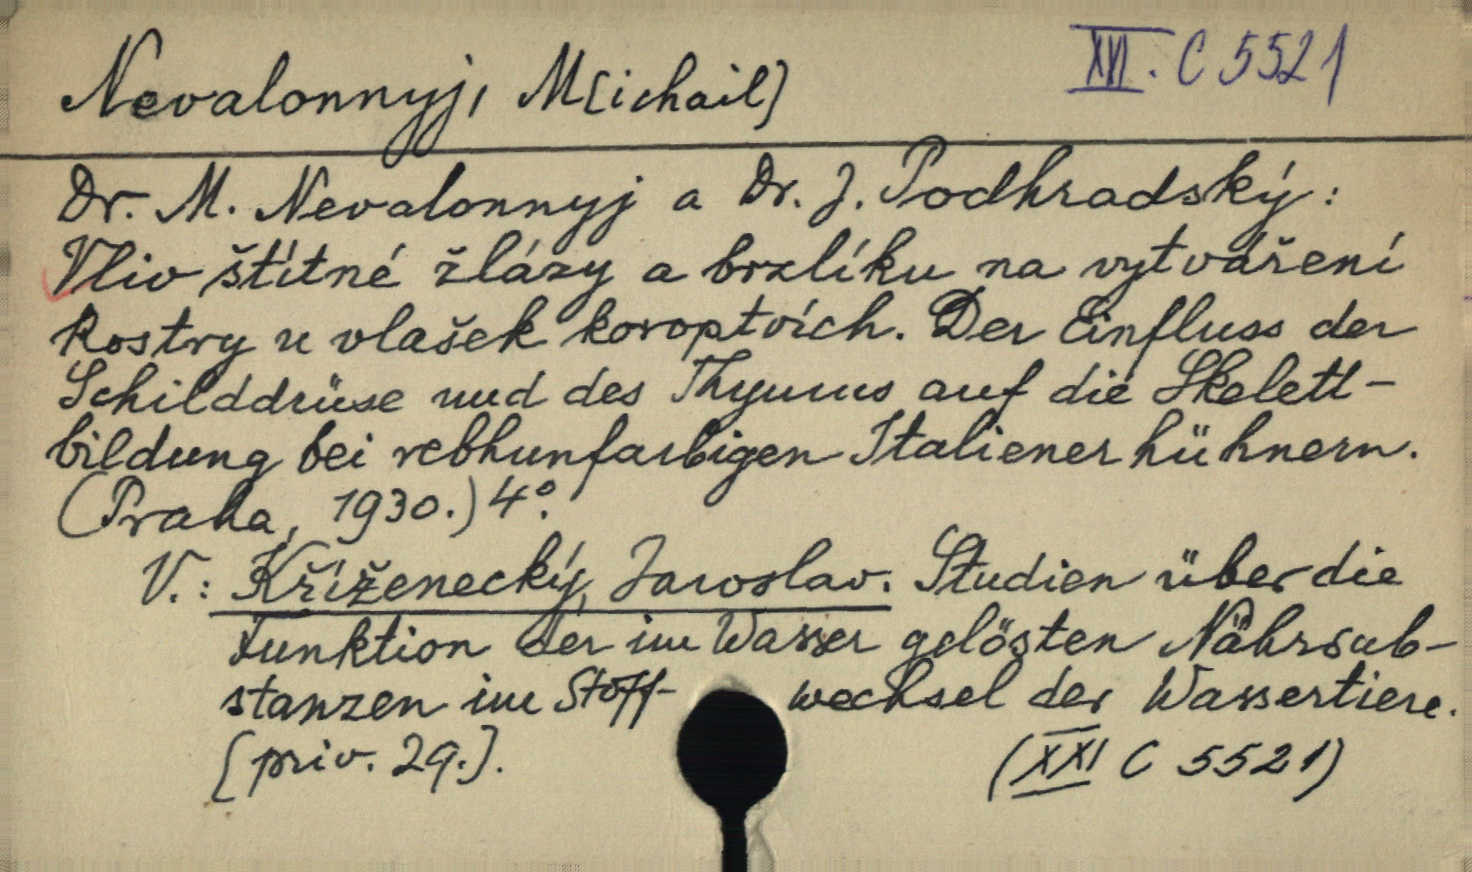 Nevalonnyj, M[ichail]
XVI. C 5521
Dr. M. Nevalonnyj a Dr. J. Podhradský:
Vliv štítné žlázy a brzlíku na vytváření
kostry u vlašek koroptvích. Der Einfluss der
Schilddrüse und des Thymus auf die Skelett-
bildung bei rebhunfarbigen Italienerhühnern.
(Praha, 1930.) 4°.
V.: Kříženecký, Jaroslav. Studien über die
Funktion der im Wasser gelösten Nährsub-
stanzen im Stoff- wechsel der Wassertiere.
[priv. 29.]. (XXI C 5521)